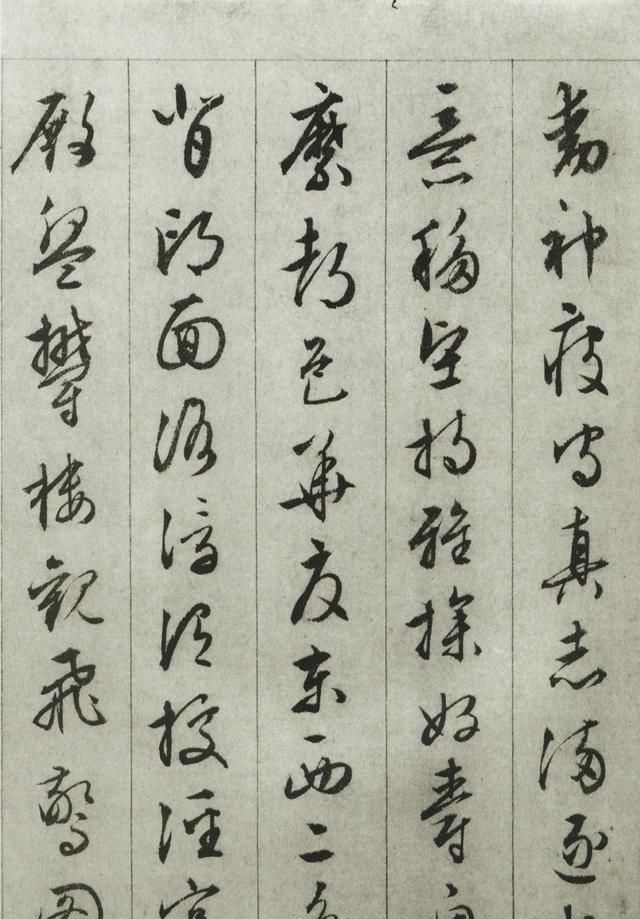 動神疲守真志滿逐
意移堅持雅操好爵自
縻都邑華夏東西二京
背邙面洛浮渭據涇宮
殿盤鬱樓觀飛驚圖